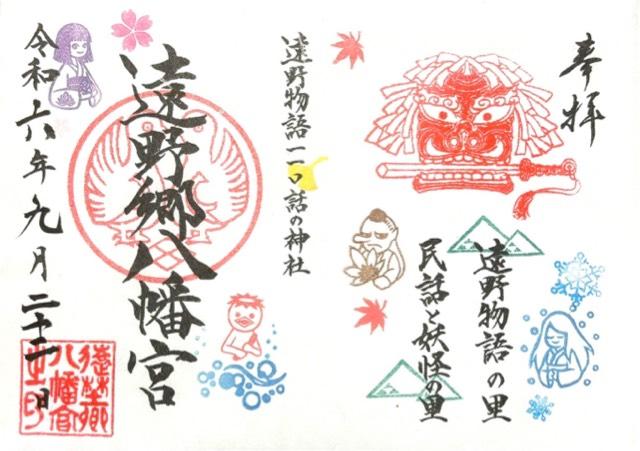 奉拝
遠野物語の里
民話と妖怪の里
遠野物語一一〇話の神社
遠野郷八幡宮
令和六年九月二十二日
遠埜郷
八幡宮
之印